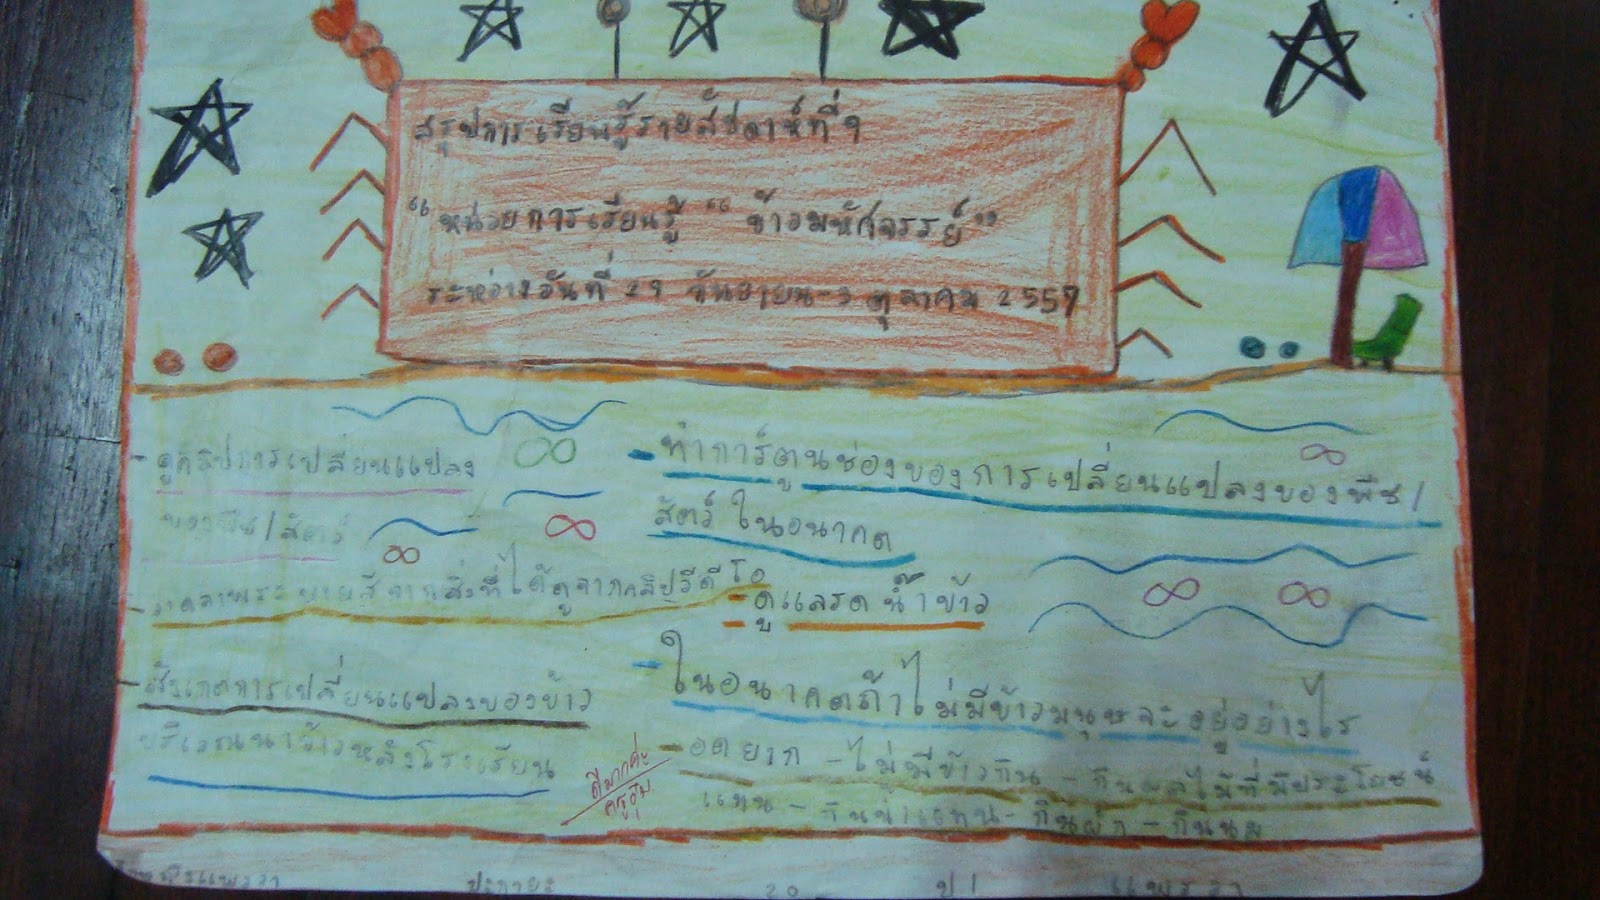 สรุปการเรียนรู้รายสัปดาห์ที่ 9
"หน่วยการเรียนรู้ "ข้าวมหัศจรรย์"
ระหว่างวันที่ 29 กันยายน-3 ตุลาคม 2557
- ดูคลิปการเปลี่ยนแปลง
ของพืช/สัตว์
- วาดภาพระบายสีจากสิ่งที่ได้ดูจากคลิปวีดีโอ
- สังเกตการเปลี่ยนแปลงของข้าว
บริเวณนาข้าวหลังโรงเรียน
- ทำการ์ตูนช่องของการเปลี่ยนแปลงของพืช/
สัตว์ ในอนาคต
- ดูแลรดน้ำข้าว
- ในอนาคตถ้าไม่มีข้าวมนุษจะอยู่อย่างไร
- อดยาก - ไม่มีข้าวกิน - กินผลไม้ที่มีประโยชน์
แทน - กินน้ำแทน - กินผัก - กินนม
ดีมากค่ะ
ครูส้ม
20 ป.1 แพรวา